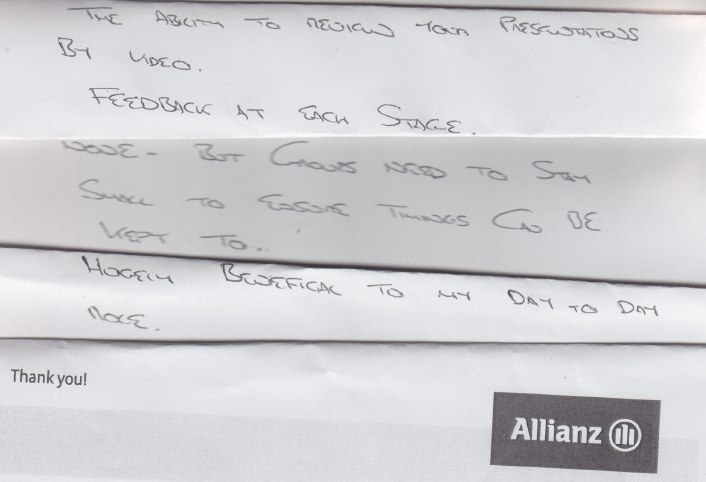 THE ABILITY TO REVIEW YOUR PRESENTATIONS
BY VIDEO.
FEEDBACK AT EACH STAGE.
NONE - BUT GROUPS NEED TO STAY
SMALL TO ENSURE TIMINGS CAN BE
KEPT TO..
HUGELY BENEFICAL TO MY DAY TO DAY
ROLE.
Thank you!
Allianz